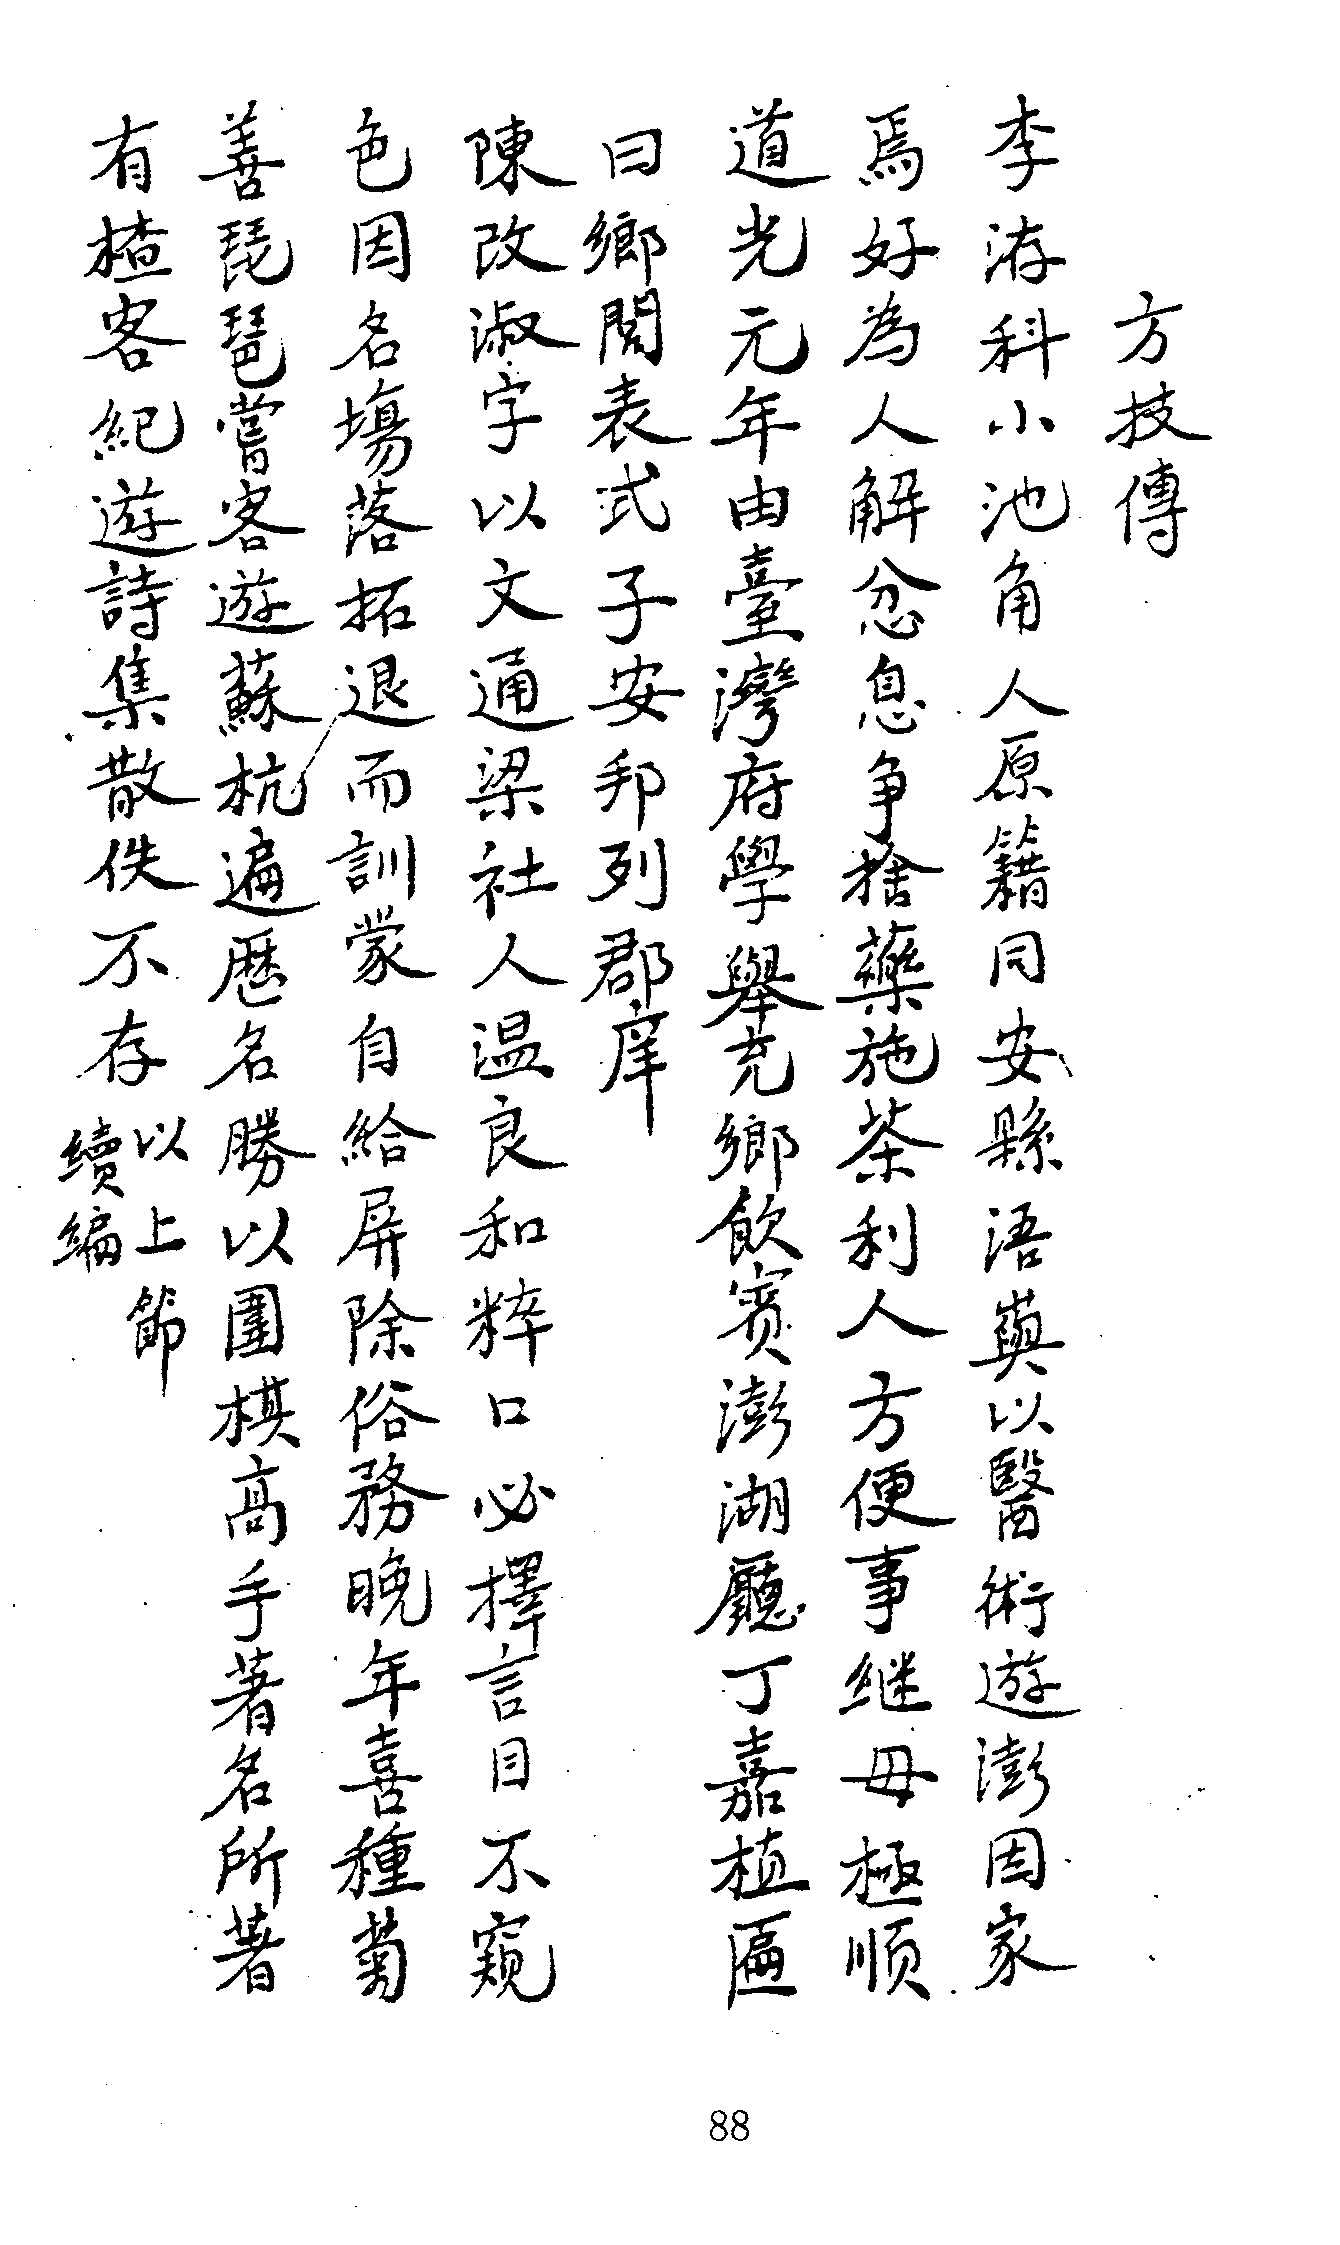 方技傳
李洊科小池角人原籍同安縣浯嶼以醫術遊澎因家
焉好為人解忿息爭捨藥施茶利人方便事继母極順
道光元年由臺灣府學舉充鄉飲賓澎湖廳丁嘉植匾
曰鄉閭表式子安邦列郡庠
陳改淑字以文通梁社人温良和粹口必擇言目不窺
色因名塲落拓退而訓蒙自給屏除俗務晚年喜種菊
善琵琶嘗客遊蘇杭遍歷名勝以圍棋高手著名所著
有楂客紀遊詩集散佚不存以上節
續編
88